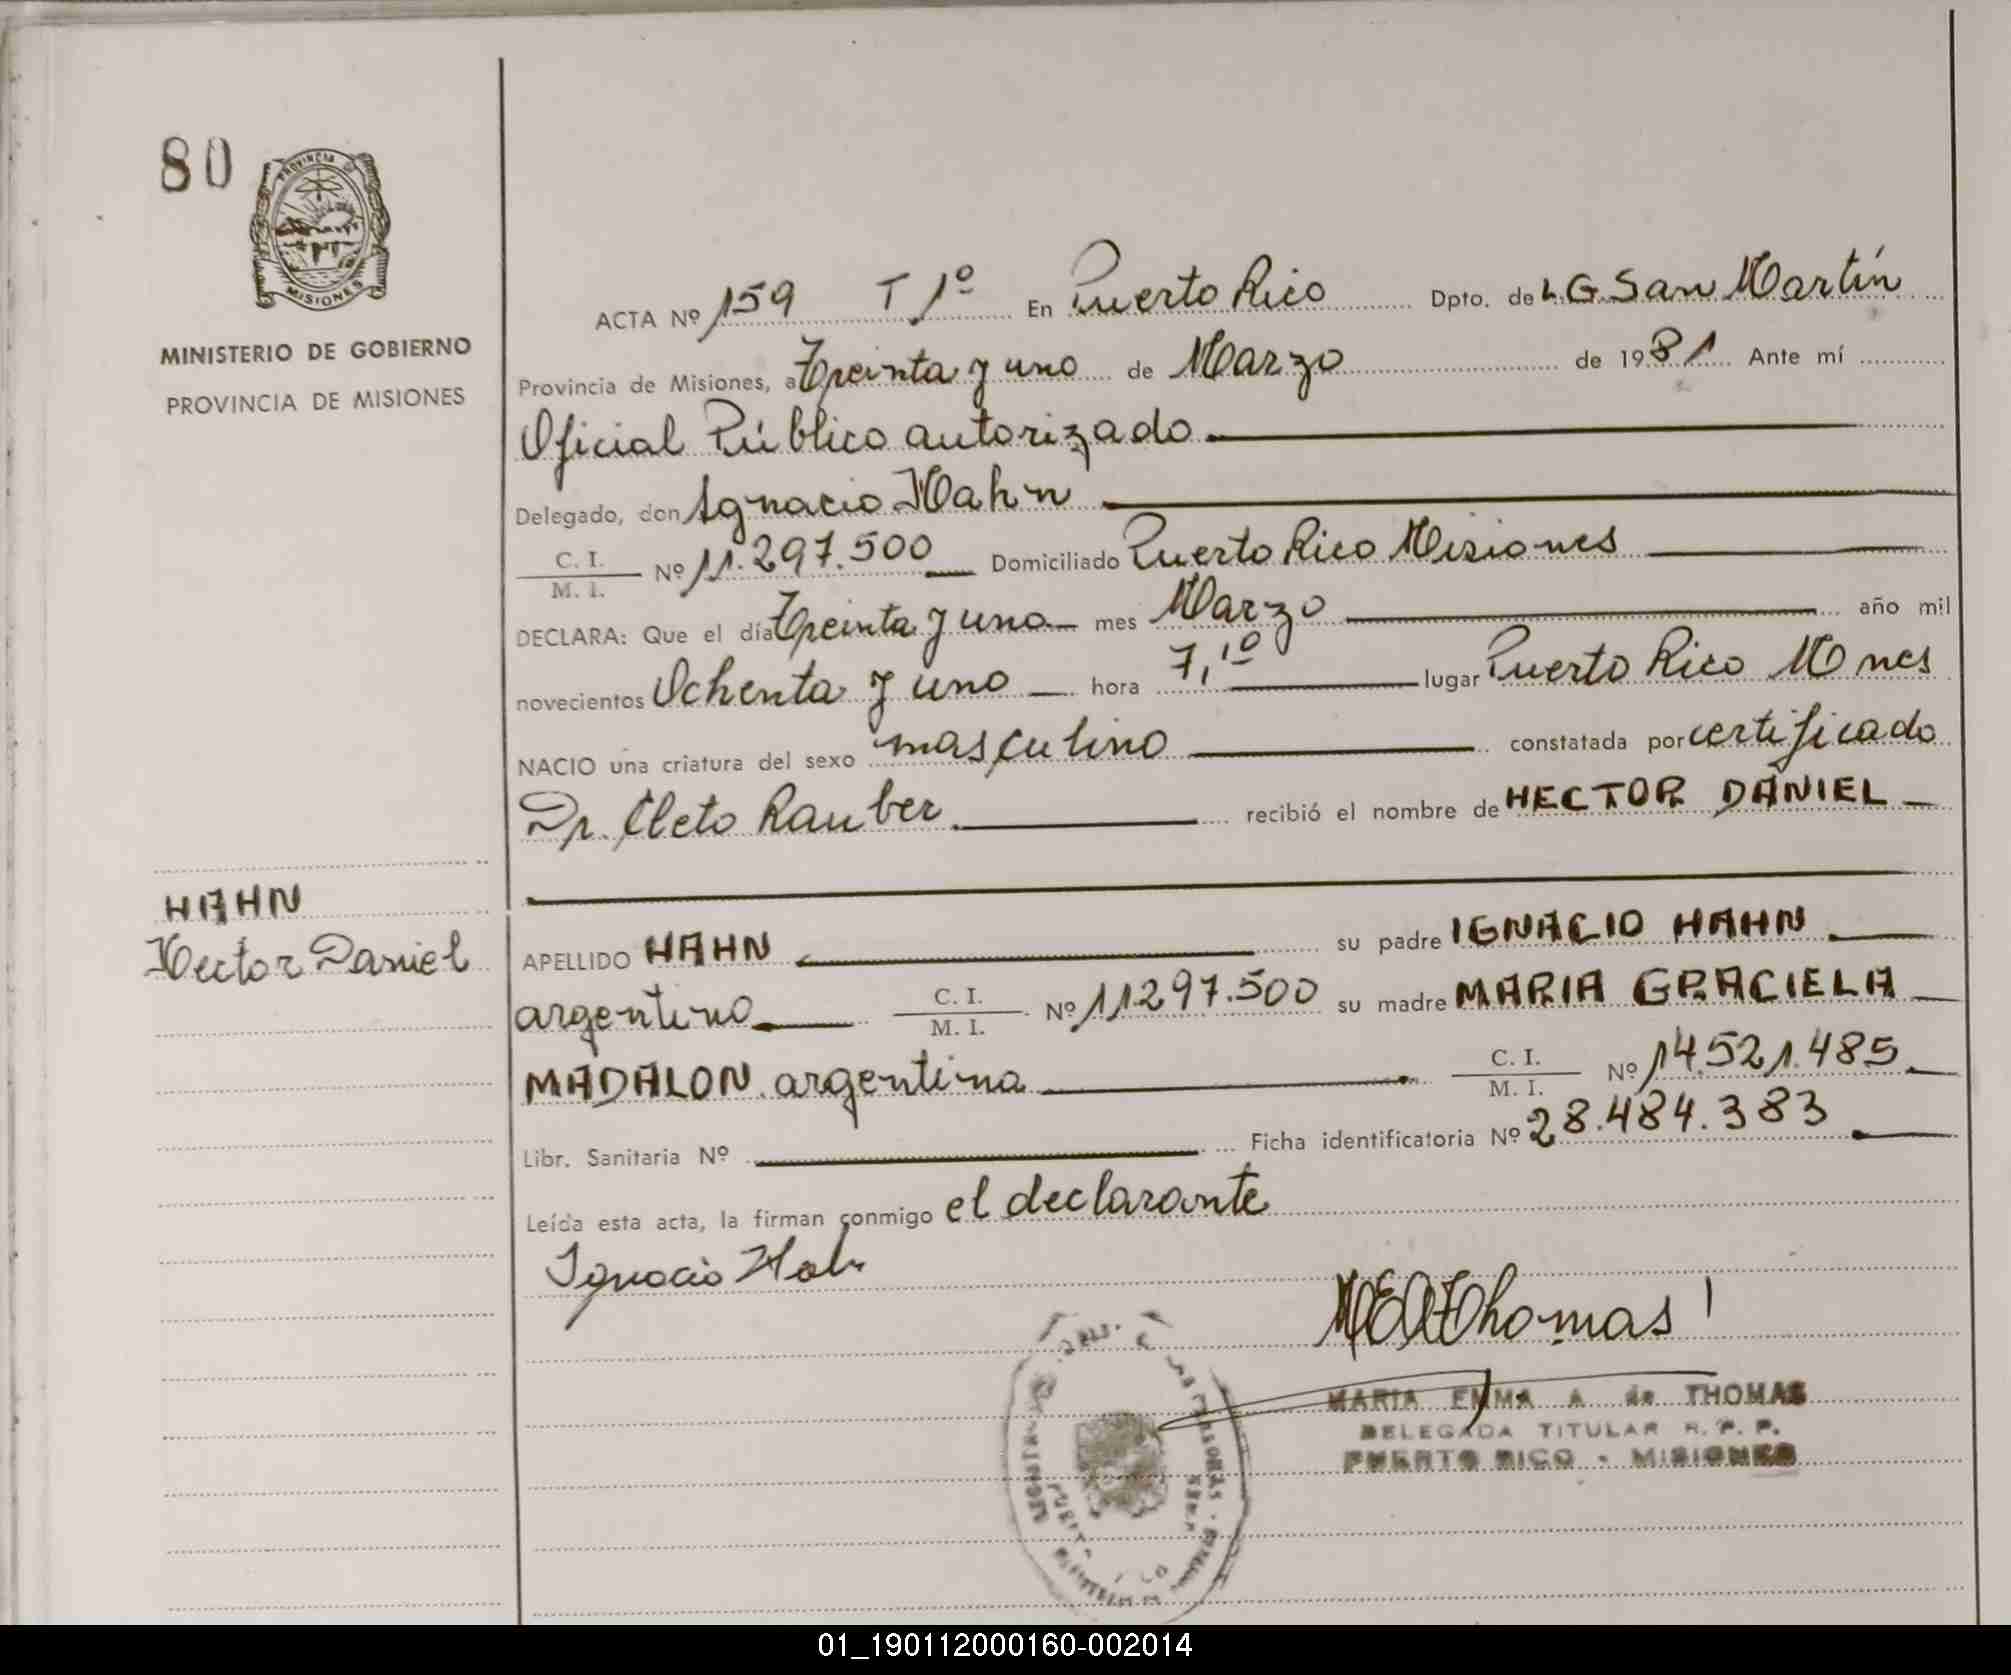 80
PROVINCIA DE
MISIONES
MINISTERIO DE GOBIERNO
PROVINCIA DE MISIONES
ACTA Nº 159 T 1º En Puerto Rico Dpto. de L.G. San Martín
Provincia de Misiones, a Treinta y uno de Marzo de 1981 Ante mí
Oficial Público autorizado
Delegado, don Ignacio Hahn
C. I.
M. I. Nº 11.297.500 Domiciliado Puerto Rico Misiones
DECLARA: Que el día Treinta y uno mes Marzo año mil
novecientos Ochenta y uno hora 7,10 lugar Puerto Rico Mones
NACIO una criatura del sexo masculino constatada por certificado
Dr. Cleto Rauber recibió el nombre de HECTOR DANIEL
HAHN
Hector Daniel
APELLIDO HAHN su padre IGNACIO HAHN
argentino C. I.
M. I. Nº 11297.500 su madre MARIA GRACIELA
MADALON argentina C. I.
M. I. Nº 14.521.485
Libr. Sanitaria Nº Ficha identificatoria Nº 28.484.383
Leída esta acta, la firman conmigo el declarante
Ignacio Hahn
MEAThomas
MARIA EMMA A. de THOMAS
DELEGADA TITULAR R. P. P.
PUERTO RICO - MISIONES
01_190112000160-002014